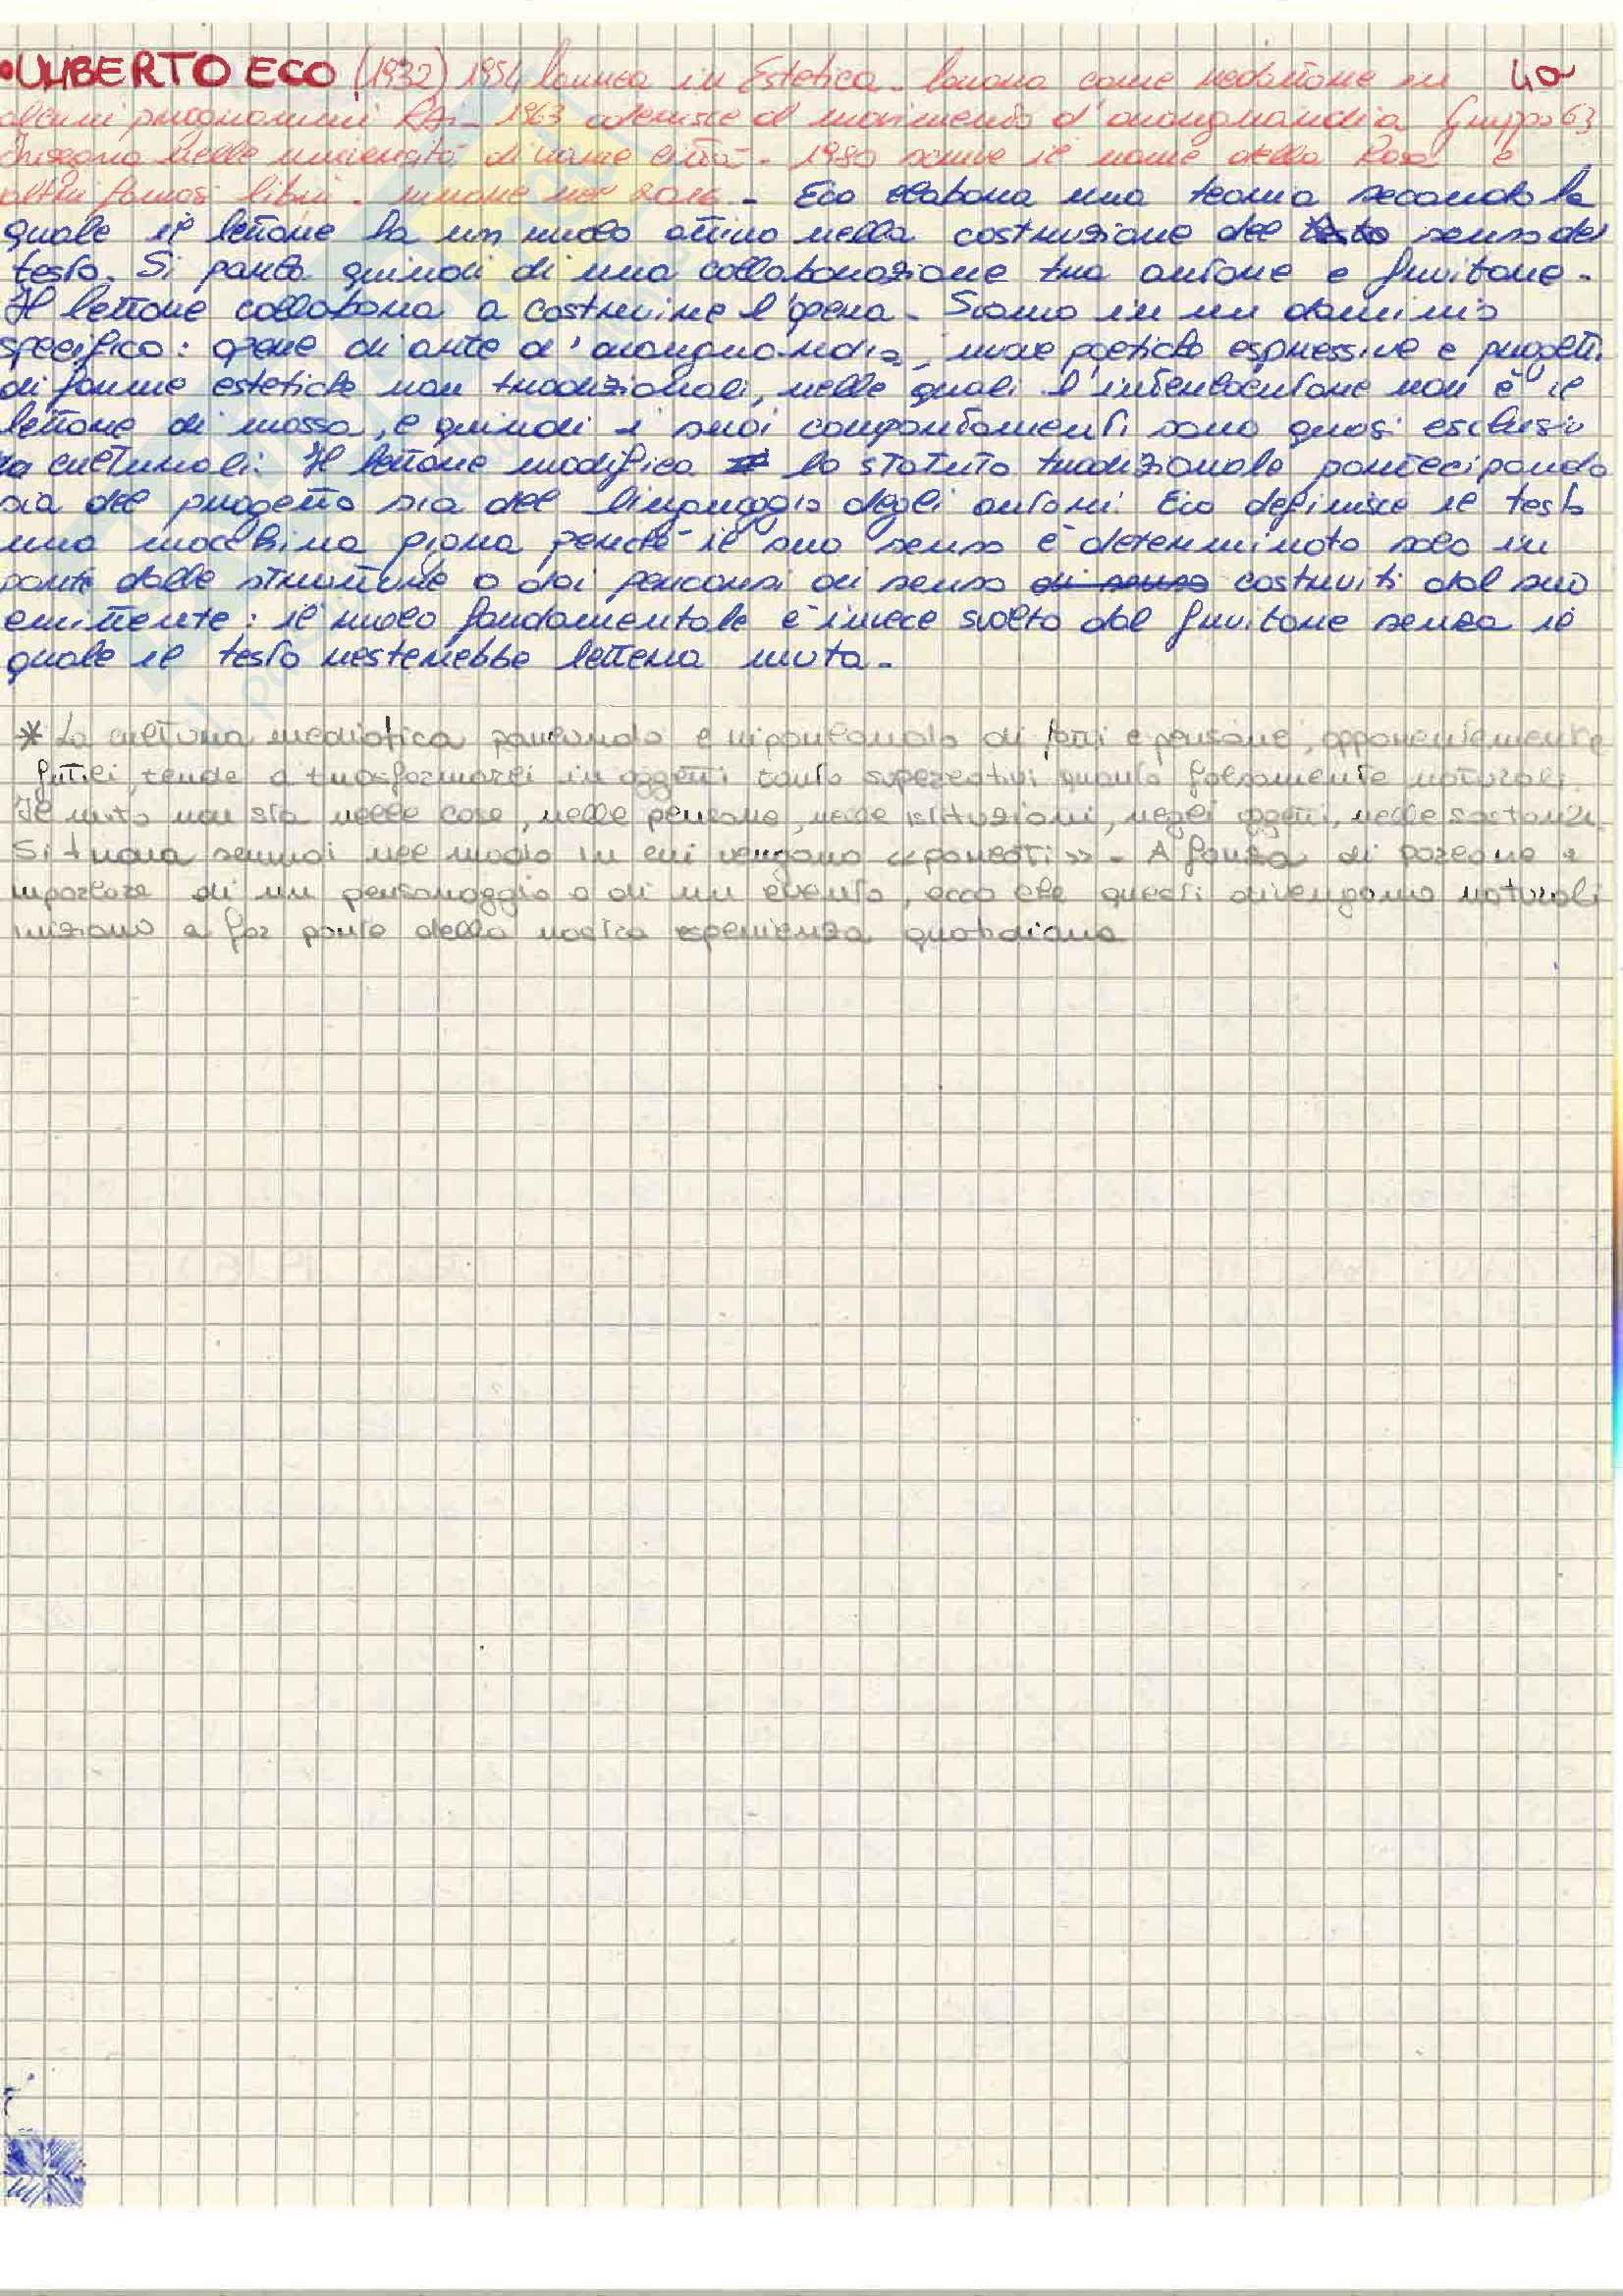 • UMBERTO ECO (1932) 1954 laurea in Estetica - lavora come redattore in 40
alcuni programmi RAI - 1963 aderisce al movimento d'avanguardia Gruppo 63
Insegna nelle università di varie città - 1980 scrive il nome della Rosa e
altri famosi libri - muore nel 2016 - Eco elabora una teoria secondo la
quale il lettore ha un ruolo attivo nella costruzione del testo senso del
testo. Si parla quindi di una collaborazione tra autore e fruitore -
Il lettore collabora a costruire l'opera - Siamo in un dominio
specifico: opere di arte d'avanguardia, poetiche espressive e progetti
di forme estetiche non tradizionali, nelle quali l'interlocutore non è il
lettore di massa, e quindi i suoi comportamenti sono quasi esclusiv
culturali. Il lettore modifica lo statuto tradizionale partecipando
sia del progetto sia del linguaggio degli autori. Eco definisce il testo
una macchina pigra perchè il suo senso è determinato solo in
parte dalle strutture o dai percorsi di senso di senso costruiti dal suo
emittente: il ruolo fondamentale è invece svolto dal fruitore senza il
quale il testo resterebbe lettera muta -
* La cultura mediatica parlando e riparlando di fatti e persone, apparentemente
futili, tende a trasformarli in oggetti tanto superlativi quanto falsamente naturali.
Il mito non sta nelle cose, nelle persone, nelle istituzioni, negli oggetti, nelle sostanze.
Si trova semmai nel modo in cui vengono «parlati» - A forza di parlare e
riparlare di un personaggio o di un evento, ecco che questi divengono naturali
iniziano a far parte della nostra esperienza quotidiana